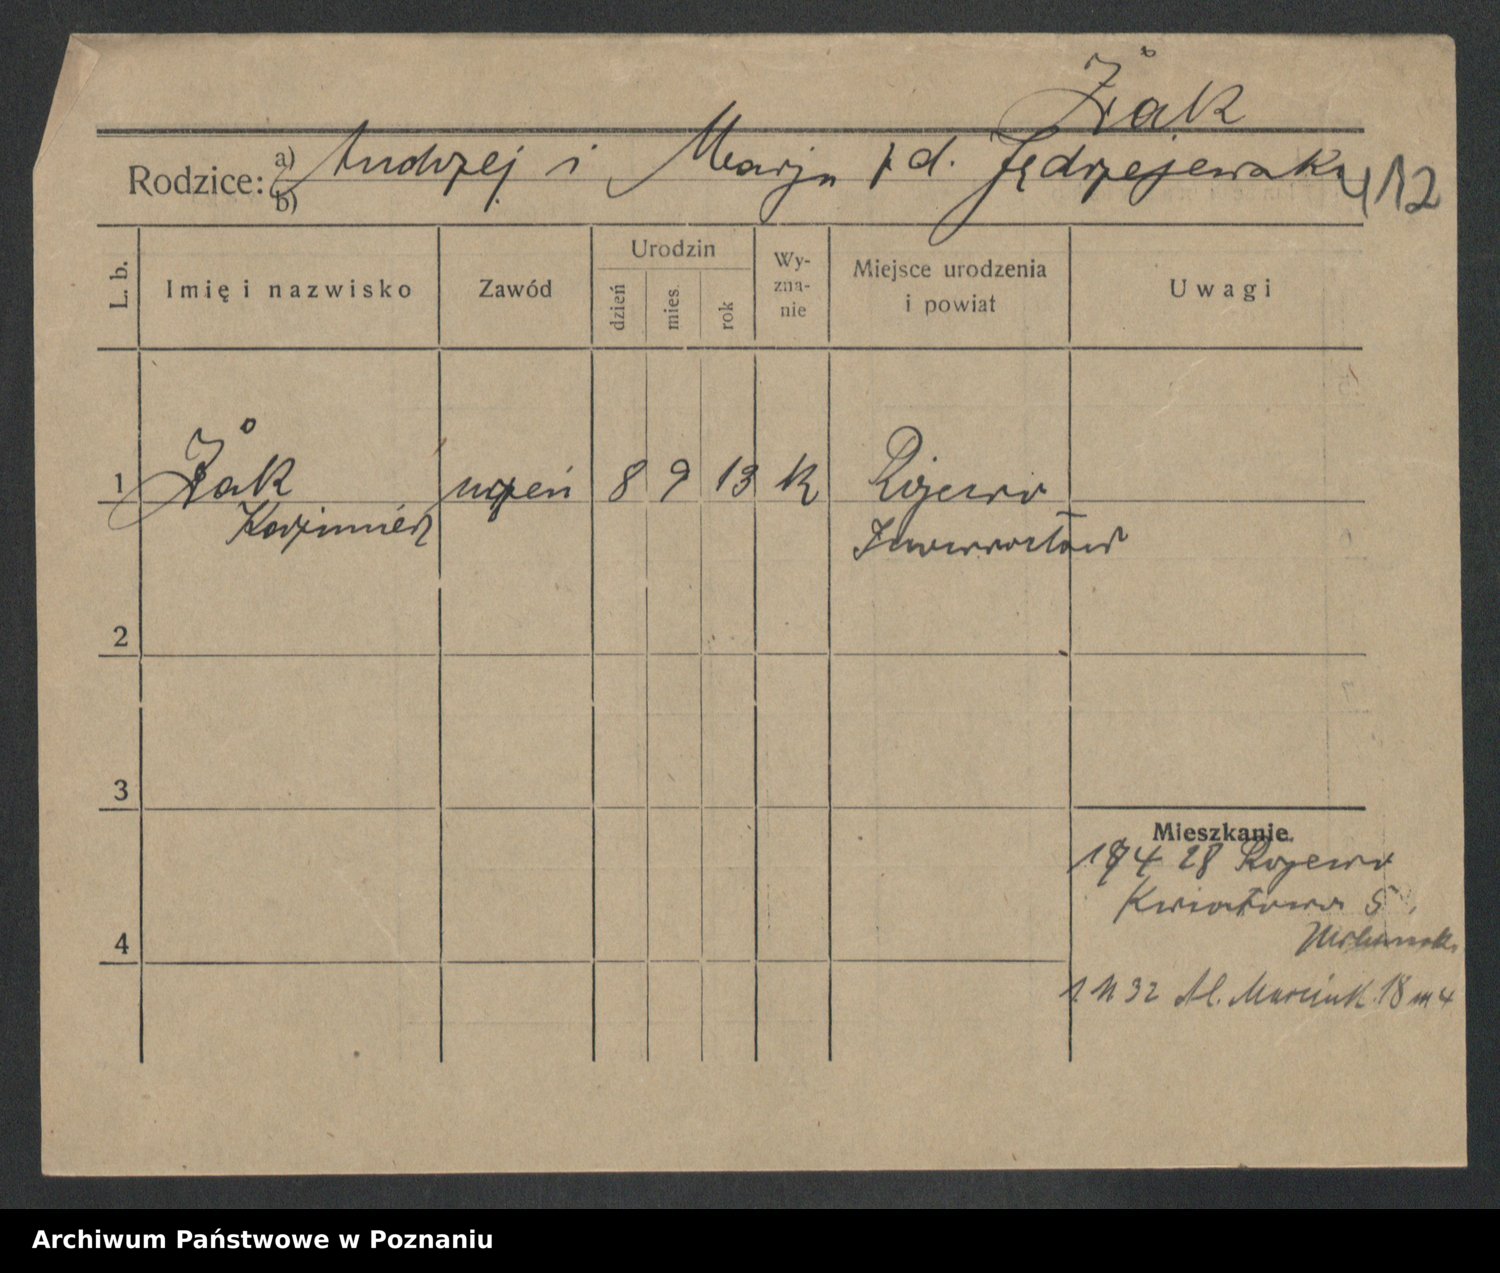 Żak
Rodzice: a) Andrzej i Marja z d. Jędrzejewska 412
b)
L. b. Imię i nazwisko Zawód Urodzin dzień mies. rok Wyzna-nie Miejsce urodzenia i powiat Uwagi
1 Żak uczeń 8 9 13 k Rojewo
Kazimierz Inowrocław
2
3
Mieszkanie.
4 28 Rojewo
Kwiatowa 5
4
1. 11 32 Al. Marcink. 18 m 4
Archiwum Państwowe w Poznaniu